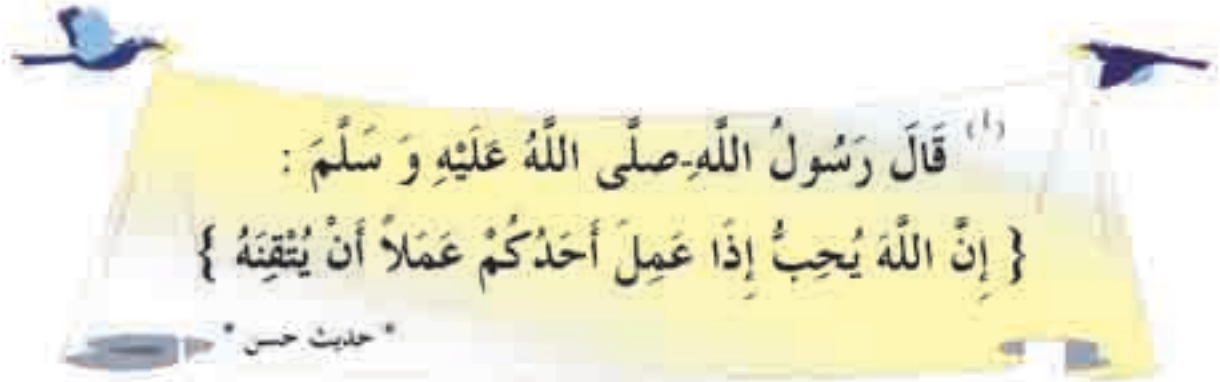 (أ) قَالَ رَسُولُ اللَّهِ-صلَّى اللَّهُ عَلَيْهِ وَ سَلَّمَ :
{ إِنَّ اللَّهَ يُحِبُّ إِذَا عَمِلَ أَحَدُكُمْ عَمَلاً أَنْ يُتْقِنَهُ }
* حديث حسن *